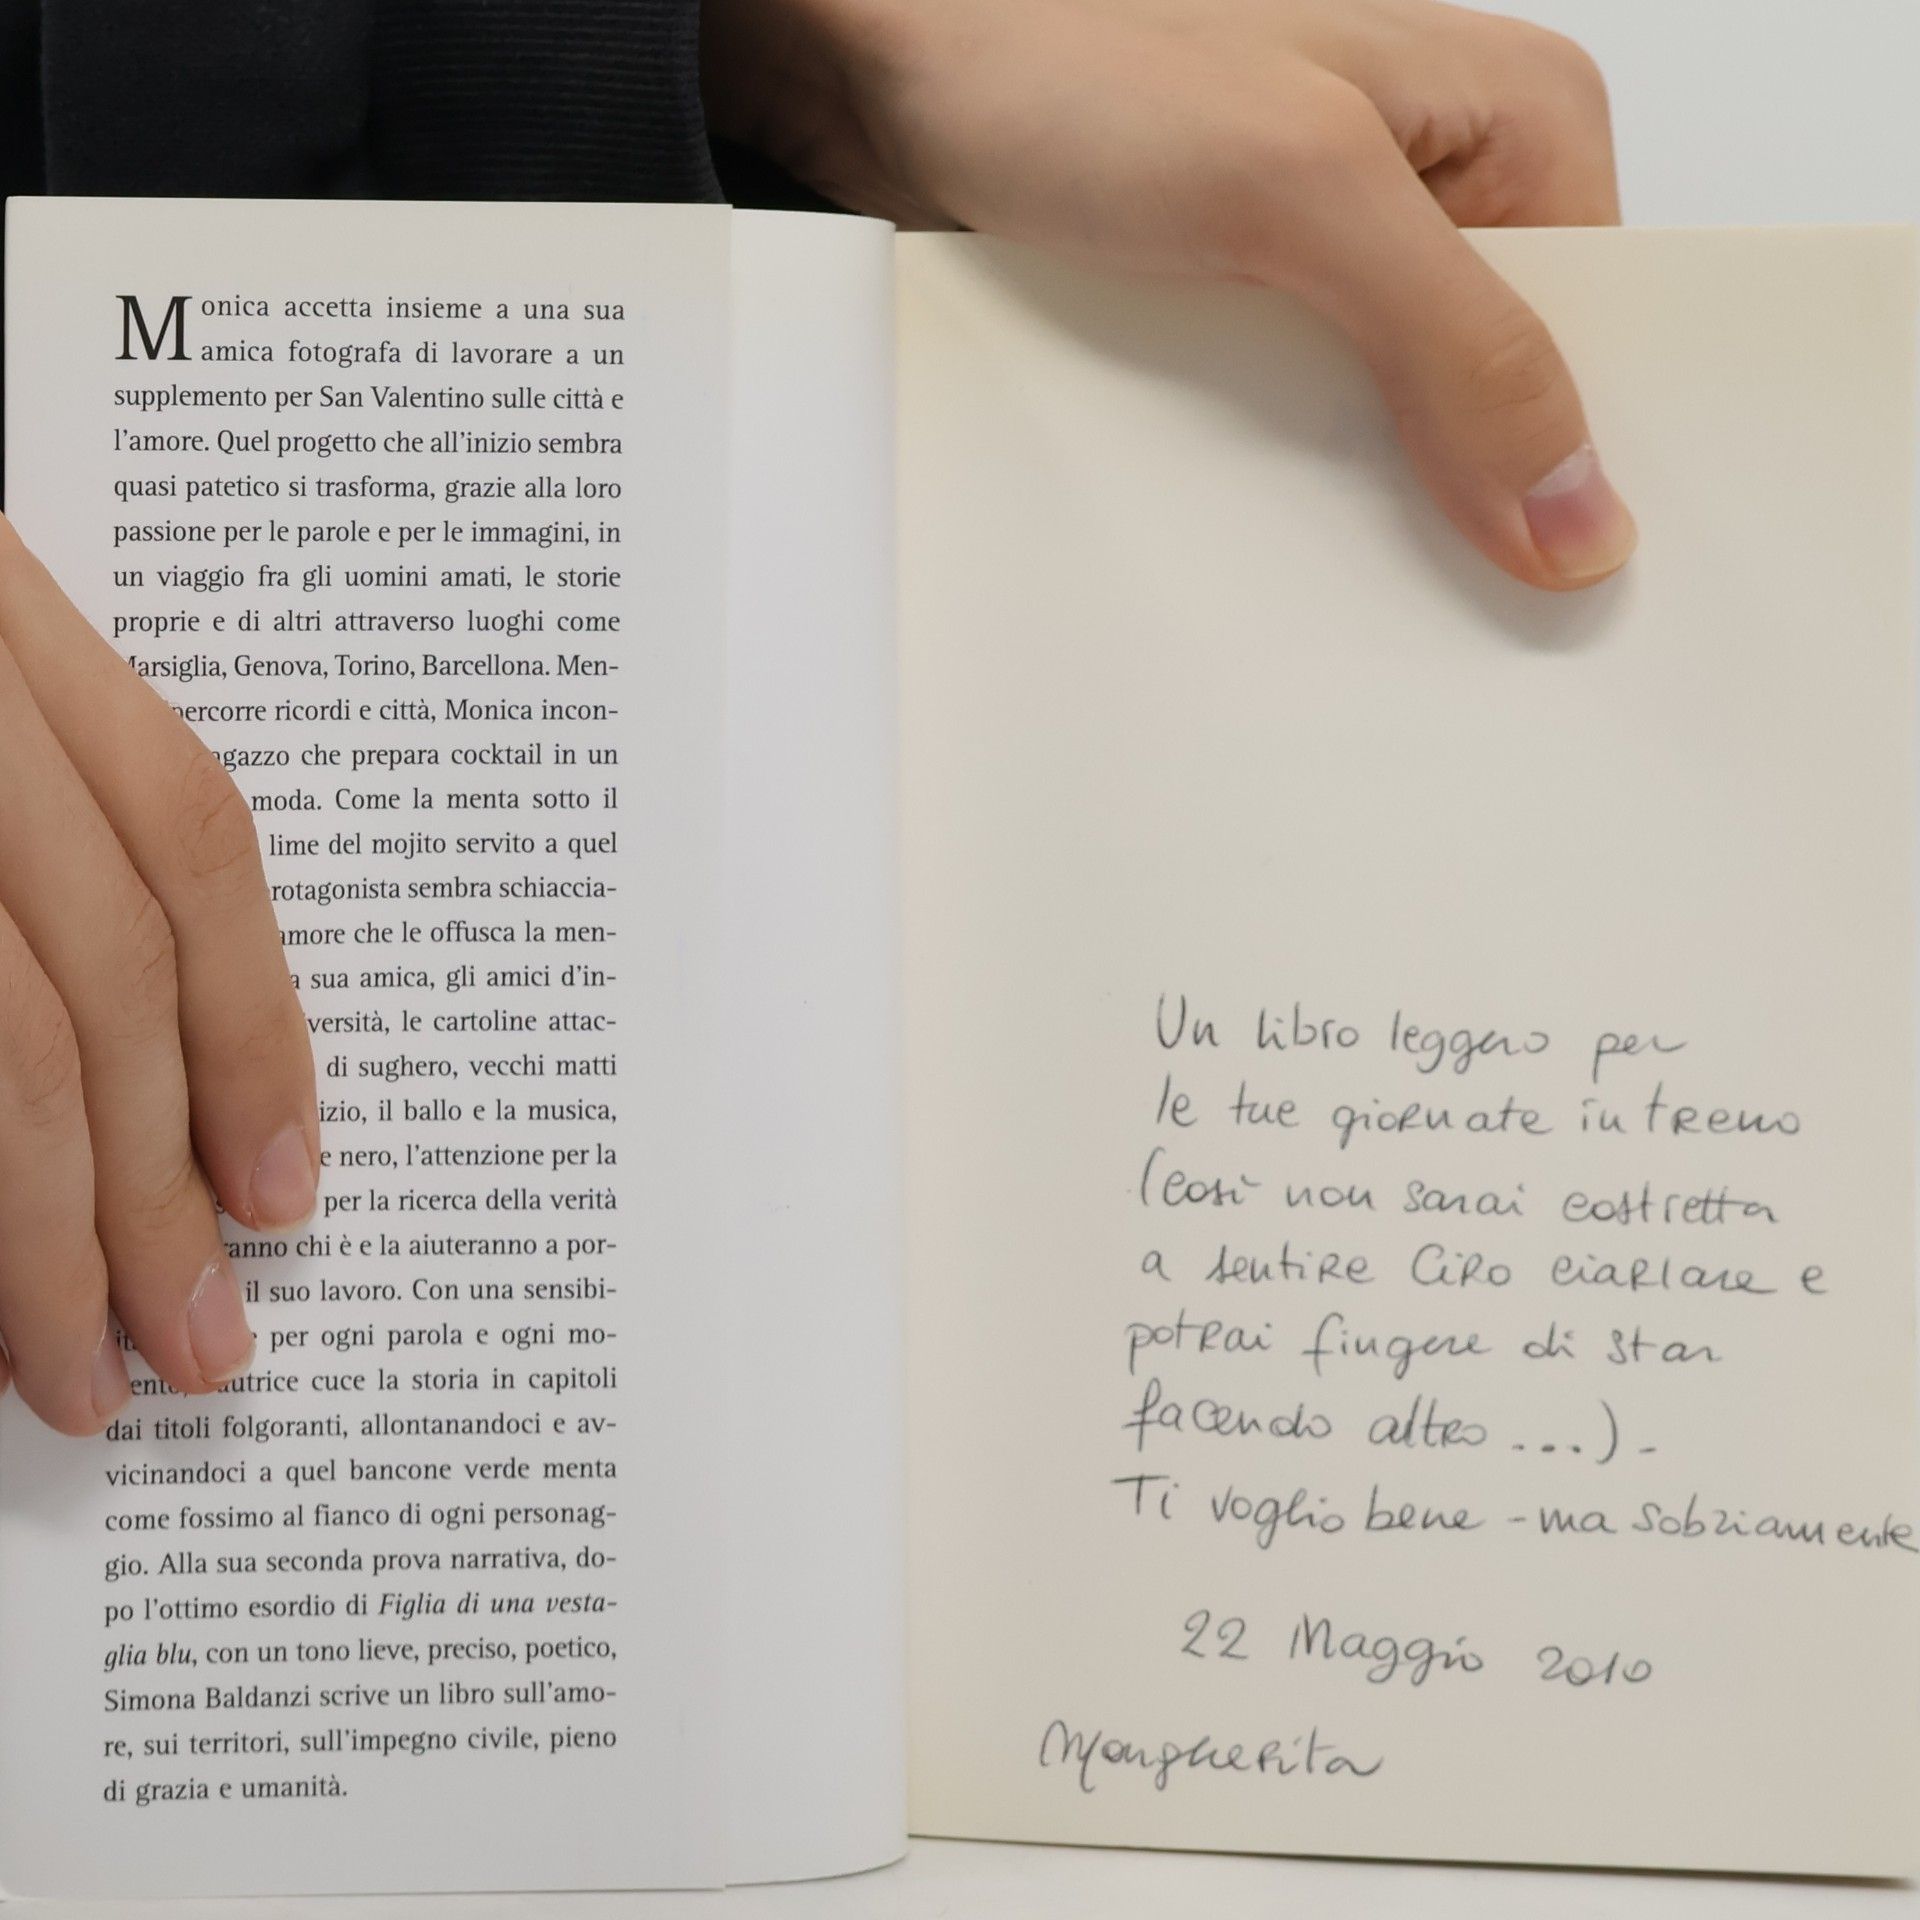 Monica accetta insieme a una sua
amica fotografa di lavorare a un
supplemento per San Valentino sulle città e
l'amore. Quel progetto che all'inizio sembra
quasi patetico si trasforma, grazie alla loro
passione per le parole e per le immagini, in
un viaggio fra gli uomini amati, le storie
proprie e di altri attraverso luoghi come
Marsiglia, Genova, Torino, Barcellona. Men-
percorre ricordi e città, Monica incon-
che prepara cocktail in un
moda. Come la menta sotto il
lime del mojito servito a quel
sembra schiaccia-
che le offusca la men-
sua amica, gli amici d'in-
le cartoline attac-
di sughero, vecchi matti
il ballo e la musica,
e nero, l'attenzione per la
per la ricerca della verità
chi è e la aiuteranno a por-
il suo lavoro. Con una sensibi-
per ogni parola e ogni mo-
cuce la storia in capitoli
dai titoli folgoranti, allontanandoci e av-
vicinandoci a quel bancone verde menta
come fossimo al fianco di ogni personag-
gio. Alla sua seconda prova narrativa, do-
po l'ottimo esordio di Figlia di una vesta-
glia blu, con un tono lieve, preciso, poetico,
Simona Baldanzi scrive un libro sull'amo-
re, sui territori, sull'impegno civile, pieno
di grazia e umanità.
Un libro leggero per
le tue giornate in treno
(così non sarai costretta
a sentire Ciro ciarlare e
potrai fingere di star
facendo altro ...) -
Ti voglio bene - ma sobriamente
22 Maggio 2010
Margherita